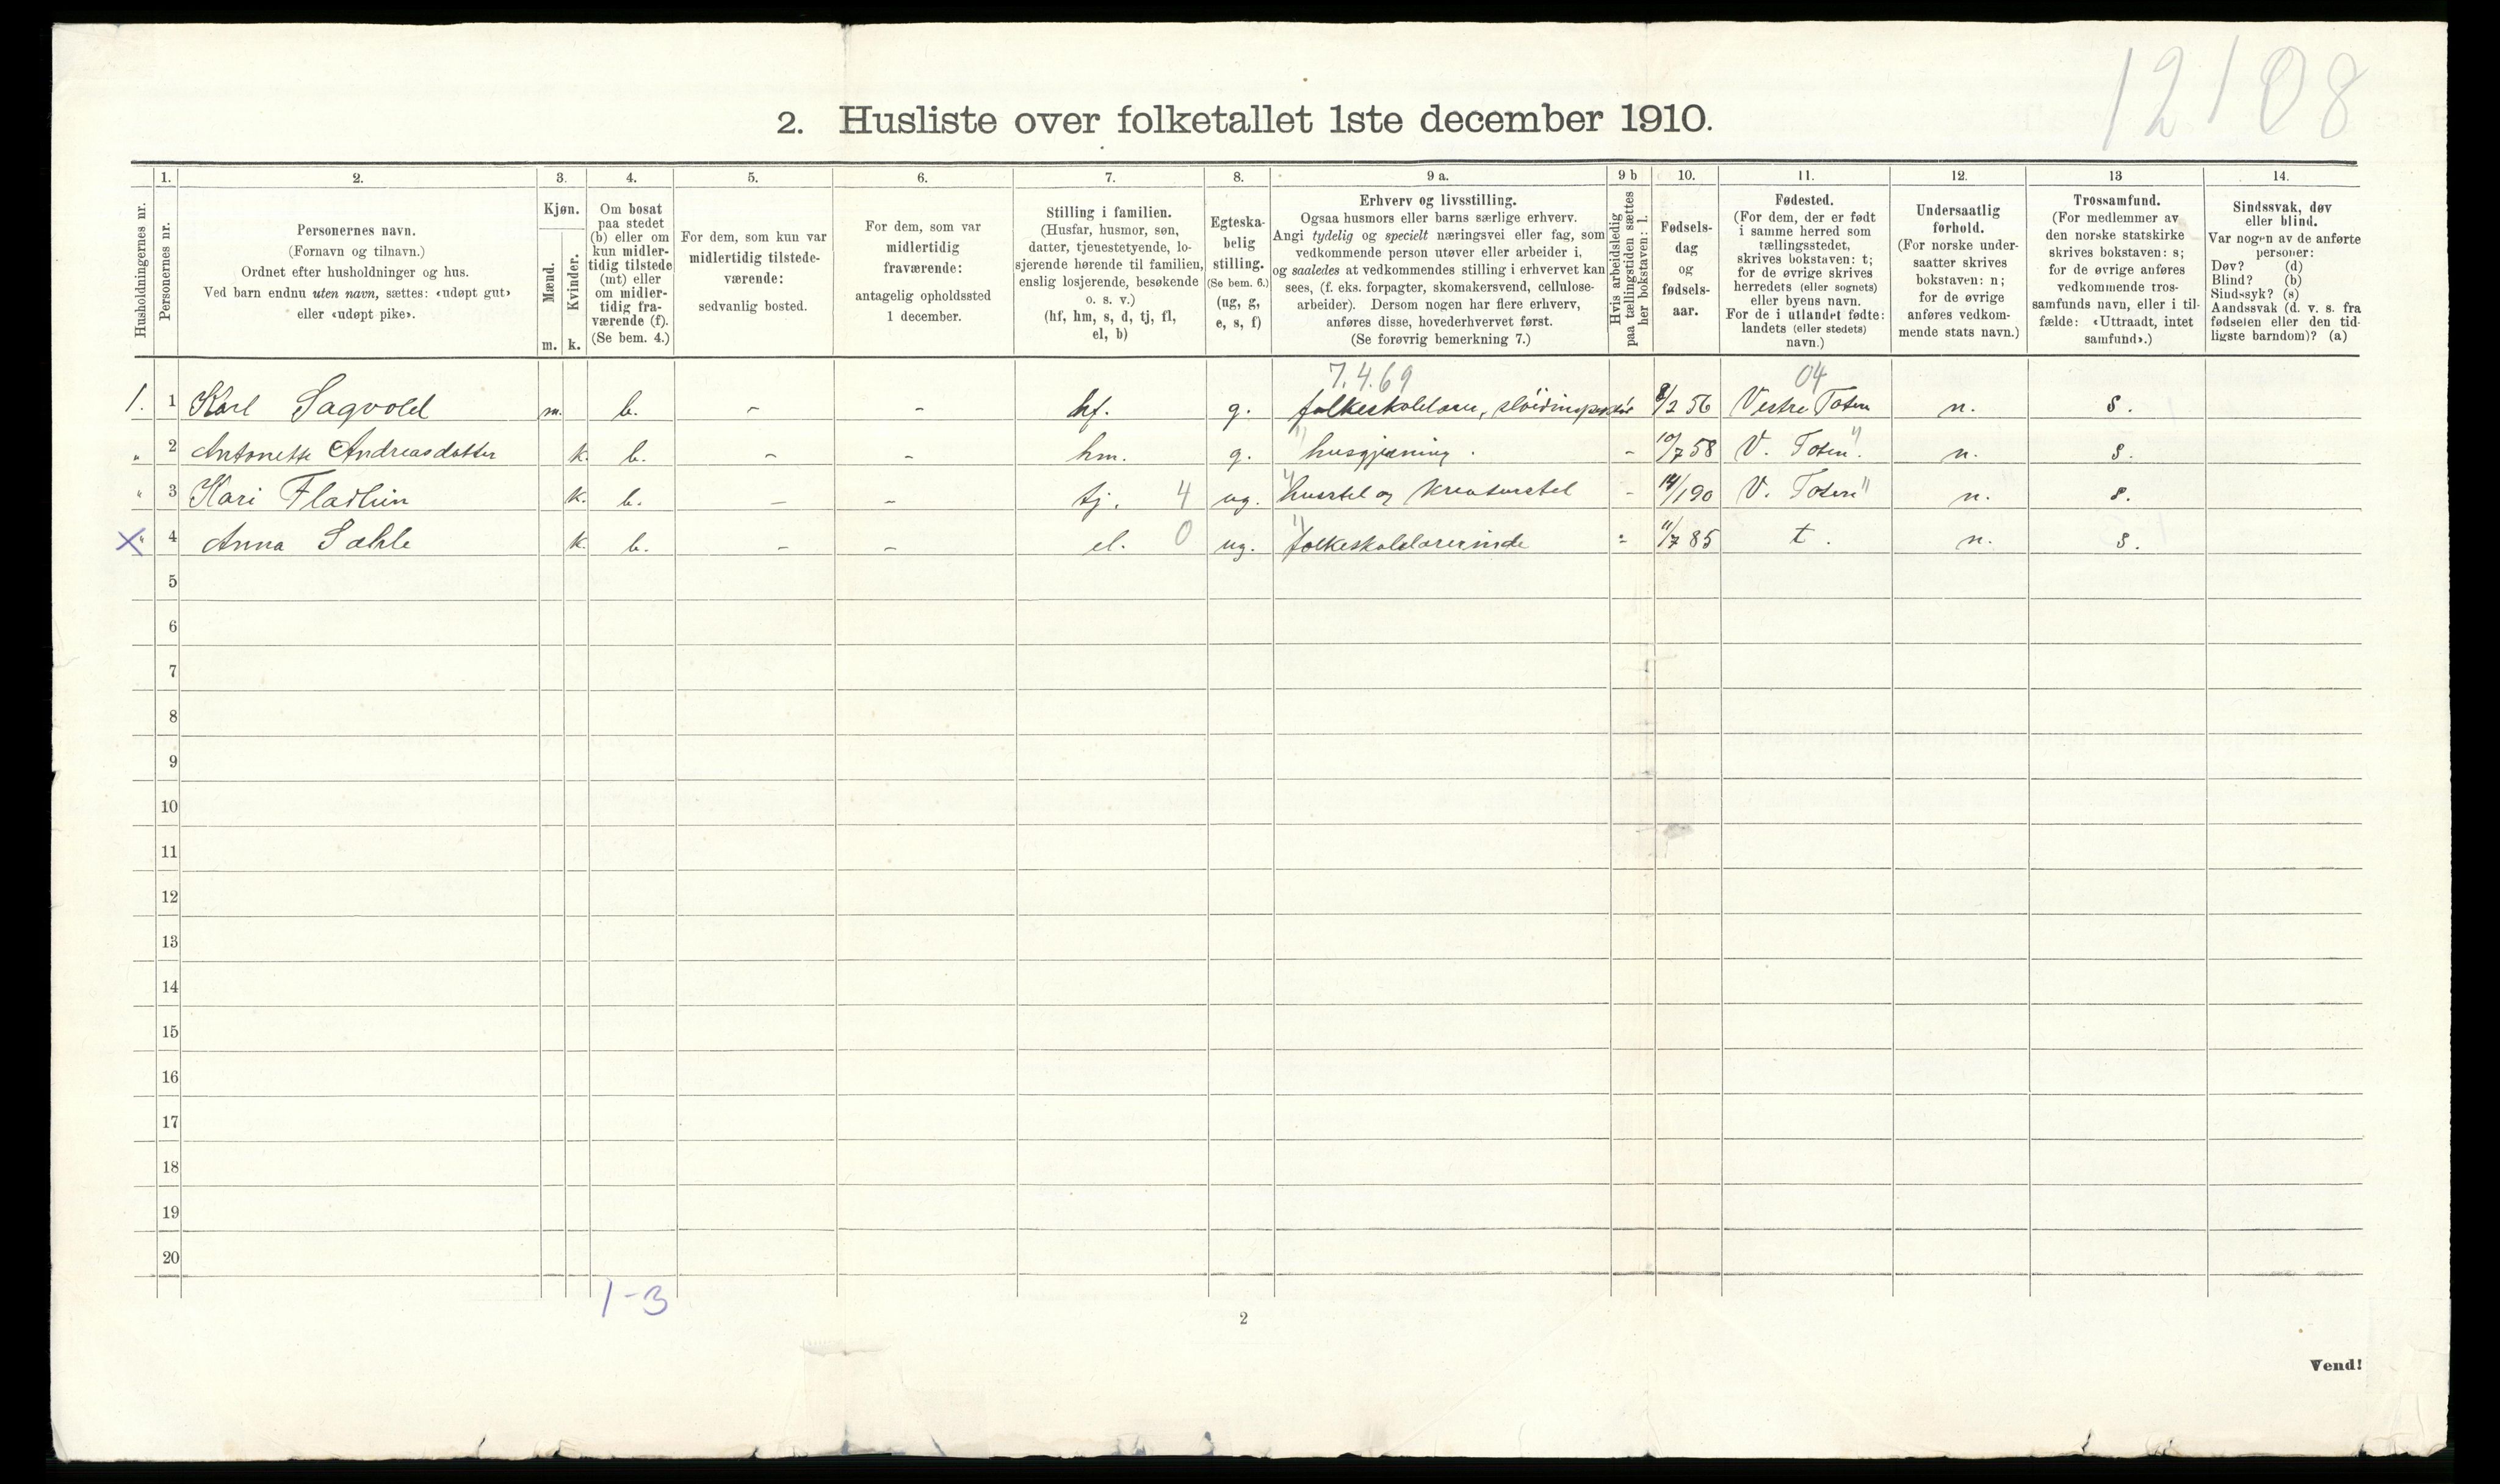 12108
2. Husliste over folketallet 1ste december 1910.
1. 2. 3. 4. 5. 6. 7. 8. 9 a. 9 b 10. 11. 12. 13 14.
Husholdningernes nr.
Personernes nr.
Personernes navn.
(Fornavn og tilnavn.)
Ordnet efter husholdninger og hus.
Ved barn endnu uten navn, sættes: «udøpt gut»
eller «udøpt pike».
Kjøn.
Mænd.
Kvinder.
m. k.
Om bosat
paa stedet
(b) eller om
kun midler-
tidig tilstede
(mt) eller
om midler-
tidig fra-
værende (f).
(Se bem. 4.)
For dem, som kun var
midlertidig tilstede-
værende:
sedvanlig bosted.
For dem, som var
midlertidig
fraværende:
antagelig opholdssted
1 december.
Stilling i familien.
(Husfar, husmor, søn,
datter, tjenestetyende, lo-
sjerende hørende til familien,
enslig losjerende, besøkende
o. s. v.)
(hf, hm, s, d, tj, fl,
el, b)
Egteska-
belig
stilling.
(Se bem. 6.)
(ug, g,
e, s, f)
Erhverv og livsstilling.
Ogsaa husmors eller barns særlige erhverv.
Angi tydelig og specielt næringsvei eller fag, som
vedkommende person utøver eller arbeider i,
og saaledes at vedkommendes stilling i erhvervet kan
sees, (f. eks. forpagter, skomakersvend, cellulose-
arbeider). Dersom nogen har flere erhverv,
anføres disse, hovederhvervet først.
(Se forøvrig bemerkning 7.)
Hvis arbeidsledig
paa tællingstiden sættes
her bokstaven: l.
Fødsels-
dag
og
fødsels-
aar.
Fødested.
(For dem, der er født
i samme herred som
tællingsstedet,
skrives bokstaven: t;
for de øvrige skrives
herredets (eller sognets)
eller byens navn.
For de i utlandet fødte:
landets (eller stedets)
navn.)
Undersaatlig
forhold.
(For norske under-
saatter skrives
bokstaven: n;
for de øvrige
anføres vedkom-
mende stats navn.)
Trossamfund.
(For medlemmer av
den norske statskirke
skrives bokstaven: s;
for de øvrige anføres
vedkommende tros-
samfunds navn, eller i til-
fælde: «Uttraadt, intet
samfund».)
Sindssvak, døv
eller blind.
Var nogen av de anførte
personer:
Døv? (d)
Blind? (b)
Sindssyk? (s)
Aandssvak (d. v. s. fra
fødselen eller den tid-
ligste barndom)? (a)
7.4.69 04
1. 1 Karl Sagvold m. b. - - hf. g. folkeskolelærer, sløidinspektør 8/2 56 Vestre Toten n. s.
" 2 Antonette Andreasdatter k. b. - - hm. g. " husgjerning. - 10/7 58 V. Toten " n. s.
" 3 Kari Fladhun k. b. - - tj. 4 ug. " husstel og kreaturstel - 14/1 90 V. Toten " n. s.
X " 4 Anna Sæhle k. b. - - el. 0 ug. " folkeskolelærerinde - 11/7 85 t. n. s.
5
6
7
8
9
10
11
12
13
14
15
16
17
18
19
20
1-3
2
Vend!